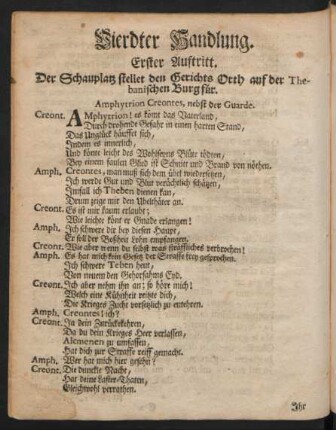 Vierdter Handlung.
Erster Auftritt.
Der Schauplatz stellet den Gerichts Orth auf der The-
banischen Burg für.
Amphytrion Creontes, nebst der Guarde.
Creont. AMphytrion! es kömt das Vaterland,
Durch drohende Gefahr in einen harten Stand,
Das Unglück häuffet sich,
Indem es innerlich,
Und könte leicht des Wohlseyns Blüte tödten,
Bey einem faulen Glied ist Schnitt und Brand von nöthen.
Amph. Creontes, man muß sich dem übel wiedersetzen,
Ich werde Gut und Blut verächtlich schätzen,
Imfall ich Theben dienen kan,
Drum zeige mir den Ubelthäter an.
Creont. Es ist mir kaum erlaubt;
Wie leichte könt er Gnade erlangen!
Amph. Ich schwere dir bey diesen Haupt,
Er soll der Boßheit Lohn empfangen.
Creont. Wie aber wenn du selbst was sträffliches verbrochen!
Amph. Es hat mich kein Gesetz der Straffe frey gesprochen.
Ich schwere Teben heut,
Von neuem den Gehorsahms Eyd.
Creont. Ich aber nehm ihn an; so höre mich!
Welch eine Kühnheit reitzte dich,
Die Krieges Zucht vorsetzlich zu entehren.
Amph. Creontes! ich?
Creont. Ja dein Zurückekehren,
Da du dein Krieges Heer verlassen,
Alcmenen zu umfassen,
Hat dich zur Straffe reiff gemacht.
Amph. Wer hat mich hier gesehn?
Creont. Die dunckle Nacht,
Hat deine Laster-Thaten,
Gleichwohl verrathen.
Ihr